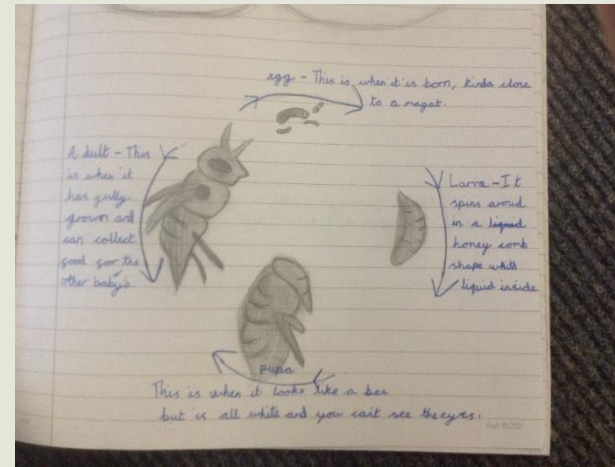 egg - This is when it is born, kinda close
to a magat.
Adult - This
is when it
has fully
grown and
can collect
food for the
other baby's.
Larva - It
spins aroud
in a liquid
honey comb
shape with
liquid inside
Pupa
This is when it looks like a bee
but is all white and you cant see the eyes.